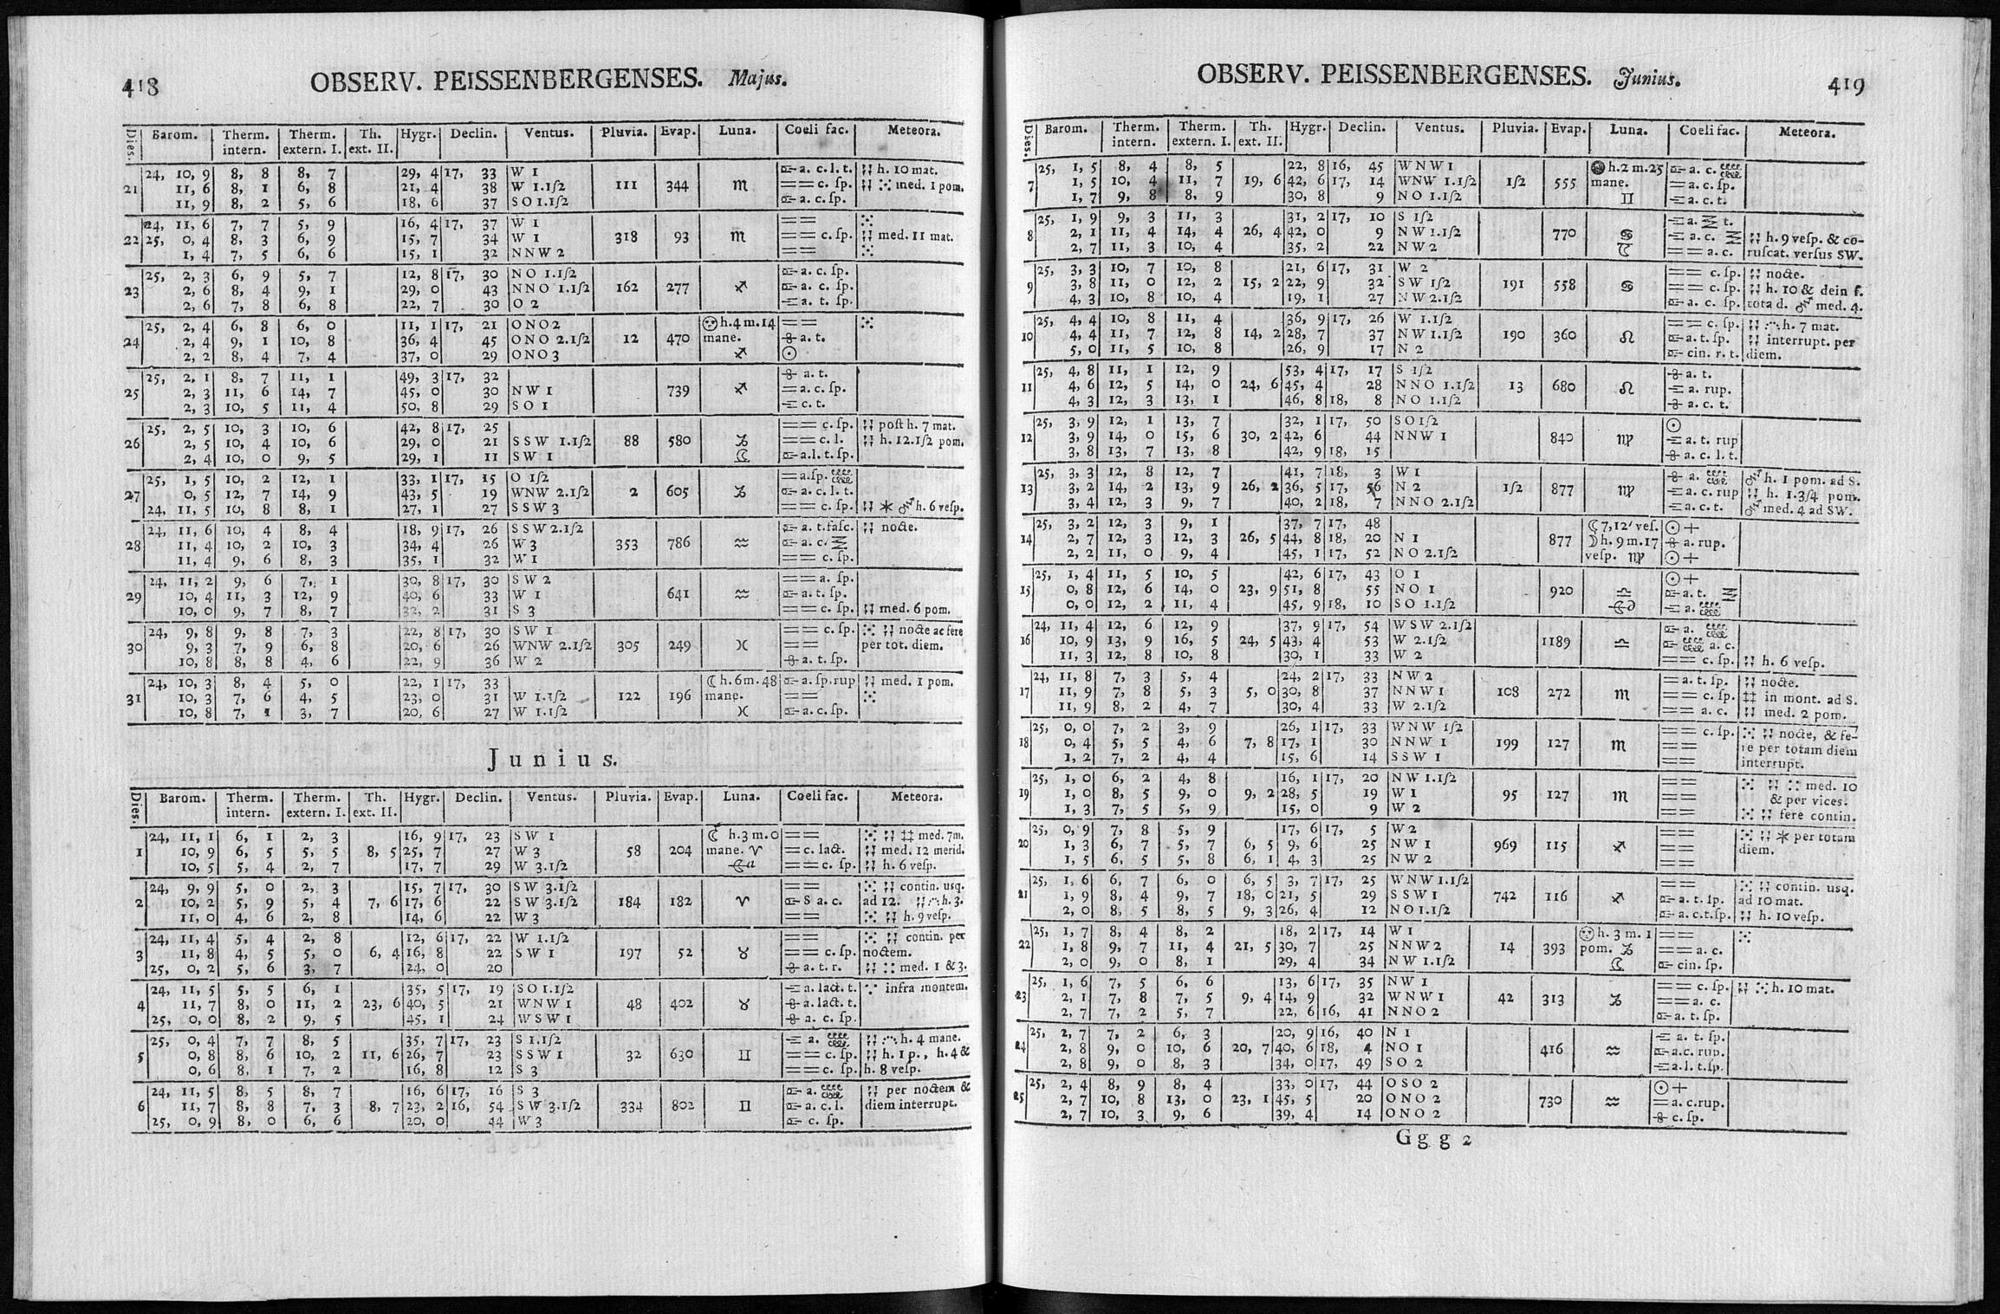 418 OBSERV. PEISSENBERGENSES. Majus.
Dies. Barom. Therm. intern. Therm. extern. I. Th. ext. II. Hygr. Declin. Ventus. Pluvia. Evap. Luna. Coeli fac. Meteora.
24, 10, 9 8, 8 8, 7 29, 4 17, 33 W 1 a. c. l. t. h. 10 mat.
21 11, 6 8, 1 6, 8 21, 4 38 W 1.1/2 111 344 ♏ == c. ſp. med. 1 pom.
11, 9 8, 2 5, 6 18, 6 37 SO 1.1/2 a. c. ſp.
24, 11, 6 7, 7 5, 9 16, 4 17, 37 W 1 ==
22 25, 0, 4 8, 3 6, 9 15, 7 34 W 1 318 93 ♏ == c. ſp. med. 11 mat.
1, 4 7, 5 6, 6 15, 1 32 NNW 2 ==
25, 2, 3 6, 9 5, 7 12, 8 17, 30 NO 1.1/2 a. c. ſp.
23 2, 6 8, 4 9, 1 29, 0 43 NNO 1.1/2 162 277 ♐ a. c. ſp.
2, 6 7, 8 6, 8 22, 7 30 O 2 a. t. ſp.
25, 2, 4 6, 8 6, 0 11, 1 17, 21 ONO 2 h. 4 m. 14 ==
24 2, 4 9, 1 10, 8 36, 4 45 ONO 2.1/2 12 470 mane. a. t.
2, 2 8, 4 7, 4 37, 0 29 ONO 3 ♐ ⊙
25, 2, 1 8, 7 11, 1 49, 3 17, 32 a. t.
25 2, 3 11, 6 14, 7 45, 0 30 NW 1 739 ♐ = a. c. ſp.
2, 3 10, 5 11, 4 50, 8 29 SO 1 c. t.
25, 2, 5 10, 3 10, 6 42, 8 17, 25 == c. ſp. poſt h. 7 mat.
26 2, 5 10, 4 10, 6 29, 0 21 SSW 1.1/2 88 580 ♑ == c. l. h. 12.1/2 pom.
2, 4 10, 0 9, 5 29, 1 11 SW 1 a. l. t. ſp.
25, 1, 5 10, 2 12, 1 33, 1 17, 15 O 1/2 = a. ſp.
27 0, 5 12, 7 14, 9 43, 5 19 WNW 2.1/2 2 605 ♑ a. c. l. t.
24, 11, 5 10, 8 8, 1 27, 1 27 SSW 3 == c. ſp. h. 6 veſp.
24, 11, 6 10, 4 8, 4 18, 9 17, 26 SSW 2.1/2 a. t. faſc. nocte.
28 11, 4 10, 2 10, 3 34, 4 26 W 3 353 786 ♒ a. c.
11, 4 9, 6 8, 3 35, 1 32 W 1 == c. ſp.
24, 11, 2 9, 6 7, 1 30, 8 17, 30 SW 2 == a. ſp.
29 10, 4 11, 3 12, 9 40, 6 33 W 1 641 ♒ a. t. ſp.
10, 0 9, 7 8, 7 32, 2 31 S 3 == c. ſp. med. 6 pom.
24, 9, 8 9, 8 7, 3 22, 8 17, 30 SW 1 == c. ſp. nocte ac fere
30 9, 3 7, 9 6, 8 20, 6 26 WNW 2.1/2 305 249 ♓ == per tot. diem.
10, 8 8, 8 4, 6 22, 9 36 W 2 a. t. ſp.
24, 10, 3 8, 4 5, 0 22, 1 17, 33 ☾ h. 6 m. 48 a. ſp. rup med. 1 pom.
31 10, 3 7, 6 4, 5 23, 0 31 W 1.1/2 122 196 mane. ==
10, 8 7, 1 3, 7 20, 6 27 W 1.1/2 ♓ a. c. ſp.
Junius.
Dies. Barom. Therm. intern. Therm. extern. I. Th. ext. II. Hygr. Declin. Ventus. Pluvia. Evap. Luna. Coeli fac. Meteora.
24, 11, 1 6, 1 2, 3 16, 9 17, 23 SW 1 ☾ h. 3 m. 0 == med. 7 m.
1 10, 9 6, 5 5, 5 8, 5 25, 7 27 W 3 58 204 mane. ♈ = c. lact. med. 12 merid.
10, 5 5, 4 2, 7 17, 7 29 W 3.1/2 == c. ſp. h. 6 veſp.
24, 9, 9 5, 0 2, 3 15, 7 17, 30 SW 3.1/2 == contin. usq.
2 10, 2 5, 9 5, 4 7, 6 17, 6 22 SW 3.1/2 184 182 ♈ S a. c. ad 12. h. 3.
11, 0 4, 6 2, 8 14, 6 22 W 3 == h. 9 veſp.
24, 11, 4 5, 4 2, 8 12, 6 17, 22 W 1.1/2 == contin. per
3 11, 8 4, 5 5, 0 6, 4 16, 8 22 SW 1 197 52 ♉ == c. ſp. noctem.
25, 0, 2 5, 6 3, 7 24, 0 20 a. t. r. med. 1 & 3.
24, 11, 5 5, 5 6, 1 35, 5 17, 19 SO 1.1/2 a. lact. t. infra montem.
4 11, 7 8, 0 11, 2 23, 6 40, 5 21 WNW 1 48 402 ♉ a. lact. t.
25, 0, 0 8, 2 9, 5 45, 1 24 WSW 1 a. c. ſp.
25, 0, 4 7, 7 8, 5 35, 7 17, 23 S 1.1/2 a. h. 4 mane.
5 0, 8 8, 6 10, 2 11, 6 26, 7 23 SSW 1 32 630 ♊ == c. ſp. h. 1 p., h. 4 &
0, 6 8, 1 7, 2 16, 8 12 S 3 == c. ſp. h. 8 veſp.
24, 11, 5 8, 5 8, 7 16, 6 17, 16 S 3 a. per noctem &
6 11, 7 8, 8 7, 3 8, 7 23, 2 16, 54 SW 3.1/2 334 802 ♊ a. c. l. diem interrupt.
25, 0, 9 8, 0 6, 6 20, 0 44 W 3 c. ſp.
OBSERV. PEISSENBERGENSES. Junius. 419
Dies. Barom. Therm. intern. Therm. extern. I. Th. ext. II. Hygr. Declin. Ventus. Pluvia. Evap. Luna. Coeli fac. Meteora.
25, 1, 5 8, 4 8, 5 22, 8 16, 45 WNW 1 h. 2 m. 25 a. c.
7 1, 5 10, 4 11, 7 19, 6 42, 6 17, 14 WNW 1.1/2 1/2 555 mane. = a. c. ſp.
1, 7 9, 8 8, 9 30, 8 9 NO 1.1/2 ♊ a. c. t.
25, 1, 9 9, 3 11, 3 31, 2 17, 10 S 1/2 a. t.
8 2, 1 11, 4 14, 4 26, 4 42, 0 9 NW 1.1/2 770 ♋ a. c. h. 9 veſp. & co-
2, 7 11, 3 10, 4 35, 2 22 NW 2 == a. c. ruſcat. verſus SW.
25, 3, 3 10, 7 10, 8 21, 6 17, 31 W 2 == c. ſp. nocte.
9 3, 8 11, 0 12, 2 15, 2 22, 9 32 SW 1/2 191 558 ♋ == c. ſp. h. 10 & dein f.
4, 3 10, 8 10, 4 19, 1 27 NW 2.1/2 a. c. ſp. tota d. med. 4.
25, 4, 4 10, 8 11, 4 36, 9 17, 26 W 1.1/2 == c. ſp. h. 7 mat.
10 4, 4 11, 7 12, 8 14, 2 28, 7 37 NW 1.1/2 190 360 ♌ a. t. ſp. interrupt. per
5, 0 11, 5 10, 8 26, 9 17 N 2 cin. r. t. diem.
25, 4, 8 11, 1 12, 9 53, 4 17, 17 S 1/2 a. t.
11 4, 6 12, 5 14, 0 24, 6 45, 4 28 NNO 1.1/2 13 680 ♌ a. rup.
4, 3 12, 3 13, 1 46, 8 18, 8 NO 1.1/2 a. c. t.
25, 3, 9 12, 1 13, 7 32, 1 17, 50 SO 1/2 ⊙
12 3, 9 14, 0 15, 6 30, 2 42, 6 44 NNW 1 840 ♍ a. t. rup
3, 8 13, 7 13, 8 42, 9 18, 15 a. c. l. t.
25, 3, 3 12, 8 12, 7 41, 7 18, 3 W 1 a. h. 1 pom. ad S.
13 3, 2 14, 2 13, 9 26, 2 36, 5 17, 56 N 2 1/2 877 ♍ a. c. rup h. 1.3/4 pom.
3, 4 12, 3 9, 7 40, 2 18, 7 NNO 2.1/2 a. c. t. med. 4 ad SW.
25, 3, 2 12, 3 9, 1 37, 7 17, 48 ☾ 7, 12' veſ. ⊙ +
14 2, 7 12, 3 12, 3 26, 5 44, 8 18, 20 N 1 877 ☽ h. 9 m. 17 a. rup.
2, 2 11, 0 9, 4 45, 1 17, 52 NO 2.1/2 veſp. ♍ ⊙ +
25, 1, 4 11, 5 10, 5 42, 6 17, 43 O 1 ⊙ +
15 0, 8 12, 6 14, 0 23, 9 51, 8 55 NO 1 920 ♎ a. t.
0, 0 12, 2 11, 4 45, 9 18, 10 SO 1.1/2 a.
24, 11, 4 12, 6 12, 9 37, 9 17, 54 WSW 2.1/2 a.
16 10, 9 13, 9 16, 5 24, 5 43, 4 53 W 2.1/2 1189 ♎ a. c.
11, 3 12, 8 10, 8 30, 1 33 W 2 == c. ſp. h. 6 veſp.
24, 11, 8 7, 3 5, 4 24, 2 17, 33 NW 2 = a. t. ſp. nocte.
17 11, 9 7, 8 5, 3 5, 0 30, 8 37 NNW 1 108 272 ♏ == c. ſp. in mont. ad S.
11, 9 8, 2 4, 7 30, 4 33 W 2.1/2 == a. c. med. 2 pom.
25, 0, 0 7, 2 3, 9 26, 1 17, 33 WNW 1/2 == c. ſp. nocte, & fe-
18 0, 4 5, 5 4, 6 7, 8 17, 1 30 NNW 1 199 127 ♏ == re per totam diem
1, 2 7, 2 4, 4 15, 6 14 SSW 1 == interrupt.
25, 1, 0 6, 2 4, 8 16, 1 17, 20 NW 1.1/2 == med. 10
19 1, 0 8, 5 9, 0 9, 2 28, 5 19 W 1 95 127 ♏ == & per vices.
1, 3 7, 5 5, 9 15, 0 9 W 2 == fere contin.
25, 0, 9 7, 8 5, 9 17, 6 17, 5 W 2 == per totam
20 1, 3 6, 7 5, 7 6, 5 9, 6 25 NW 1 969 115 ♐ == diem.
1, 5 6, 5 5, 8 6, 1 4, 3 25 NW 2 ==
25, 1, 6 6, 7 6, 0 6, 5 3, 7 17, 25 WNW 1.1/2 == contin. usq.
21 1, 9 8, 4 9, 7 18, 0 21, 5 29 SSW 1 742 116 ♐ a. t. ſp. ad 10 mat.
2, 0 8, 5 8, 5 9, 3 26, 4 12 NO 1.1/2 a. c. t. ſp. h. 10 veſp.
25, 1, 7 8, 4 8, 2 18, 2 17, 14 W 1 h. 3 m. 1 ==
22 1, 8 9, 7 11, 4 21, 5 30, 7 25 NNW 2 14 393 pom. ♑ == a. c.
2, 0 9, 0 8, 1 29, 4 34 NW 1.1/2 cin. ſp.
25, 1, 6 7, 5 6, 6 13, 6 17, 35 NW 1 == c. ſp. h. 10 mat.
23 2, 1 7, 8 7, 5 9, 4 14, 9 32 WNW 1 42 313 ♑ == a. c.
2, 7 7, 2 5, 7 22, 6 16, 41 NNO 2 a. t. ſp.
25, 2, 7 7, 2 6, 3 20, 9 16, 40 N 1 a. t. ſp.
24 2, 8 9, 0 10, 6 20, 7 40, 6 18, 4 NO 1 416 ♒ a. c. rup.
2, 8 9, 0 8, 3 34, 0 17, 49 SO 2 a. l. t. ſp.
25, 2, 4 8, 9 8, 4 33, 0 17, 44 OSO 2 ⊙ +
25 2, 7 10, 8 13, 0 23, 1 45, 5 20 ONO 2 730 ♒ = a. c. rup.
2, 7 10, 3 9, 6 39, 4 14 ONO 2 c. ſp.
Ggg 2